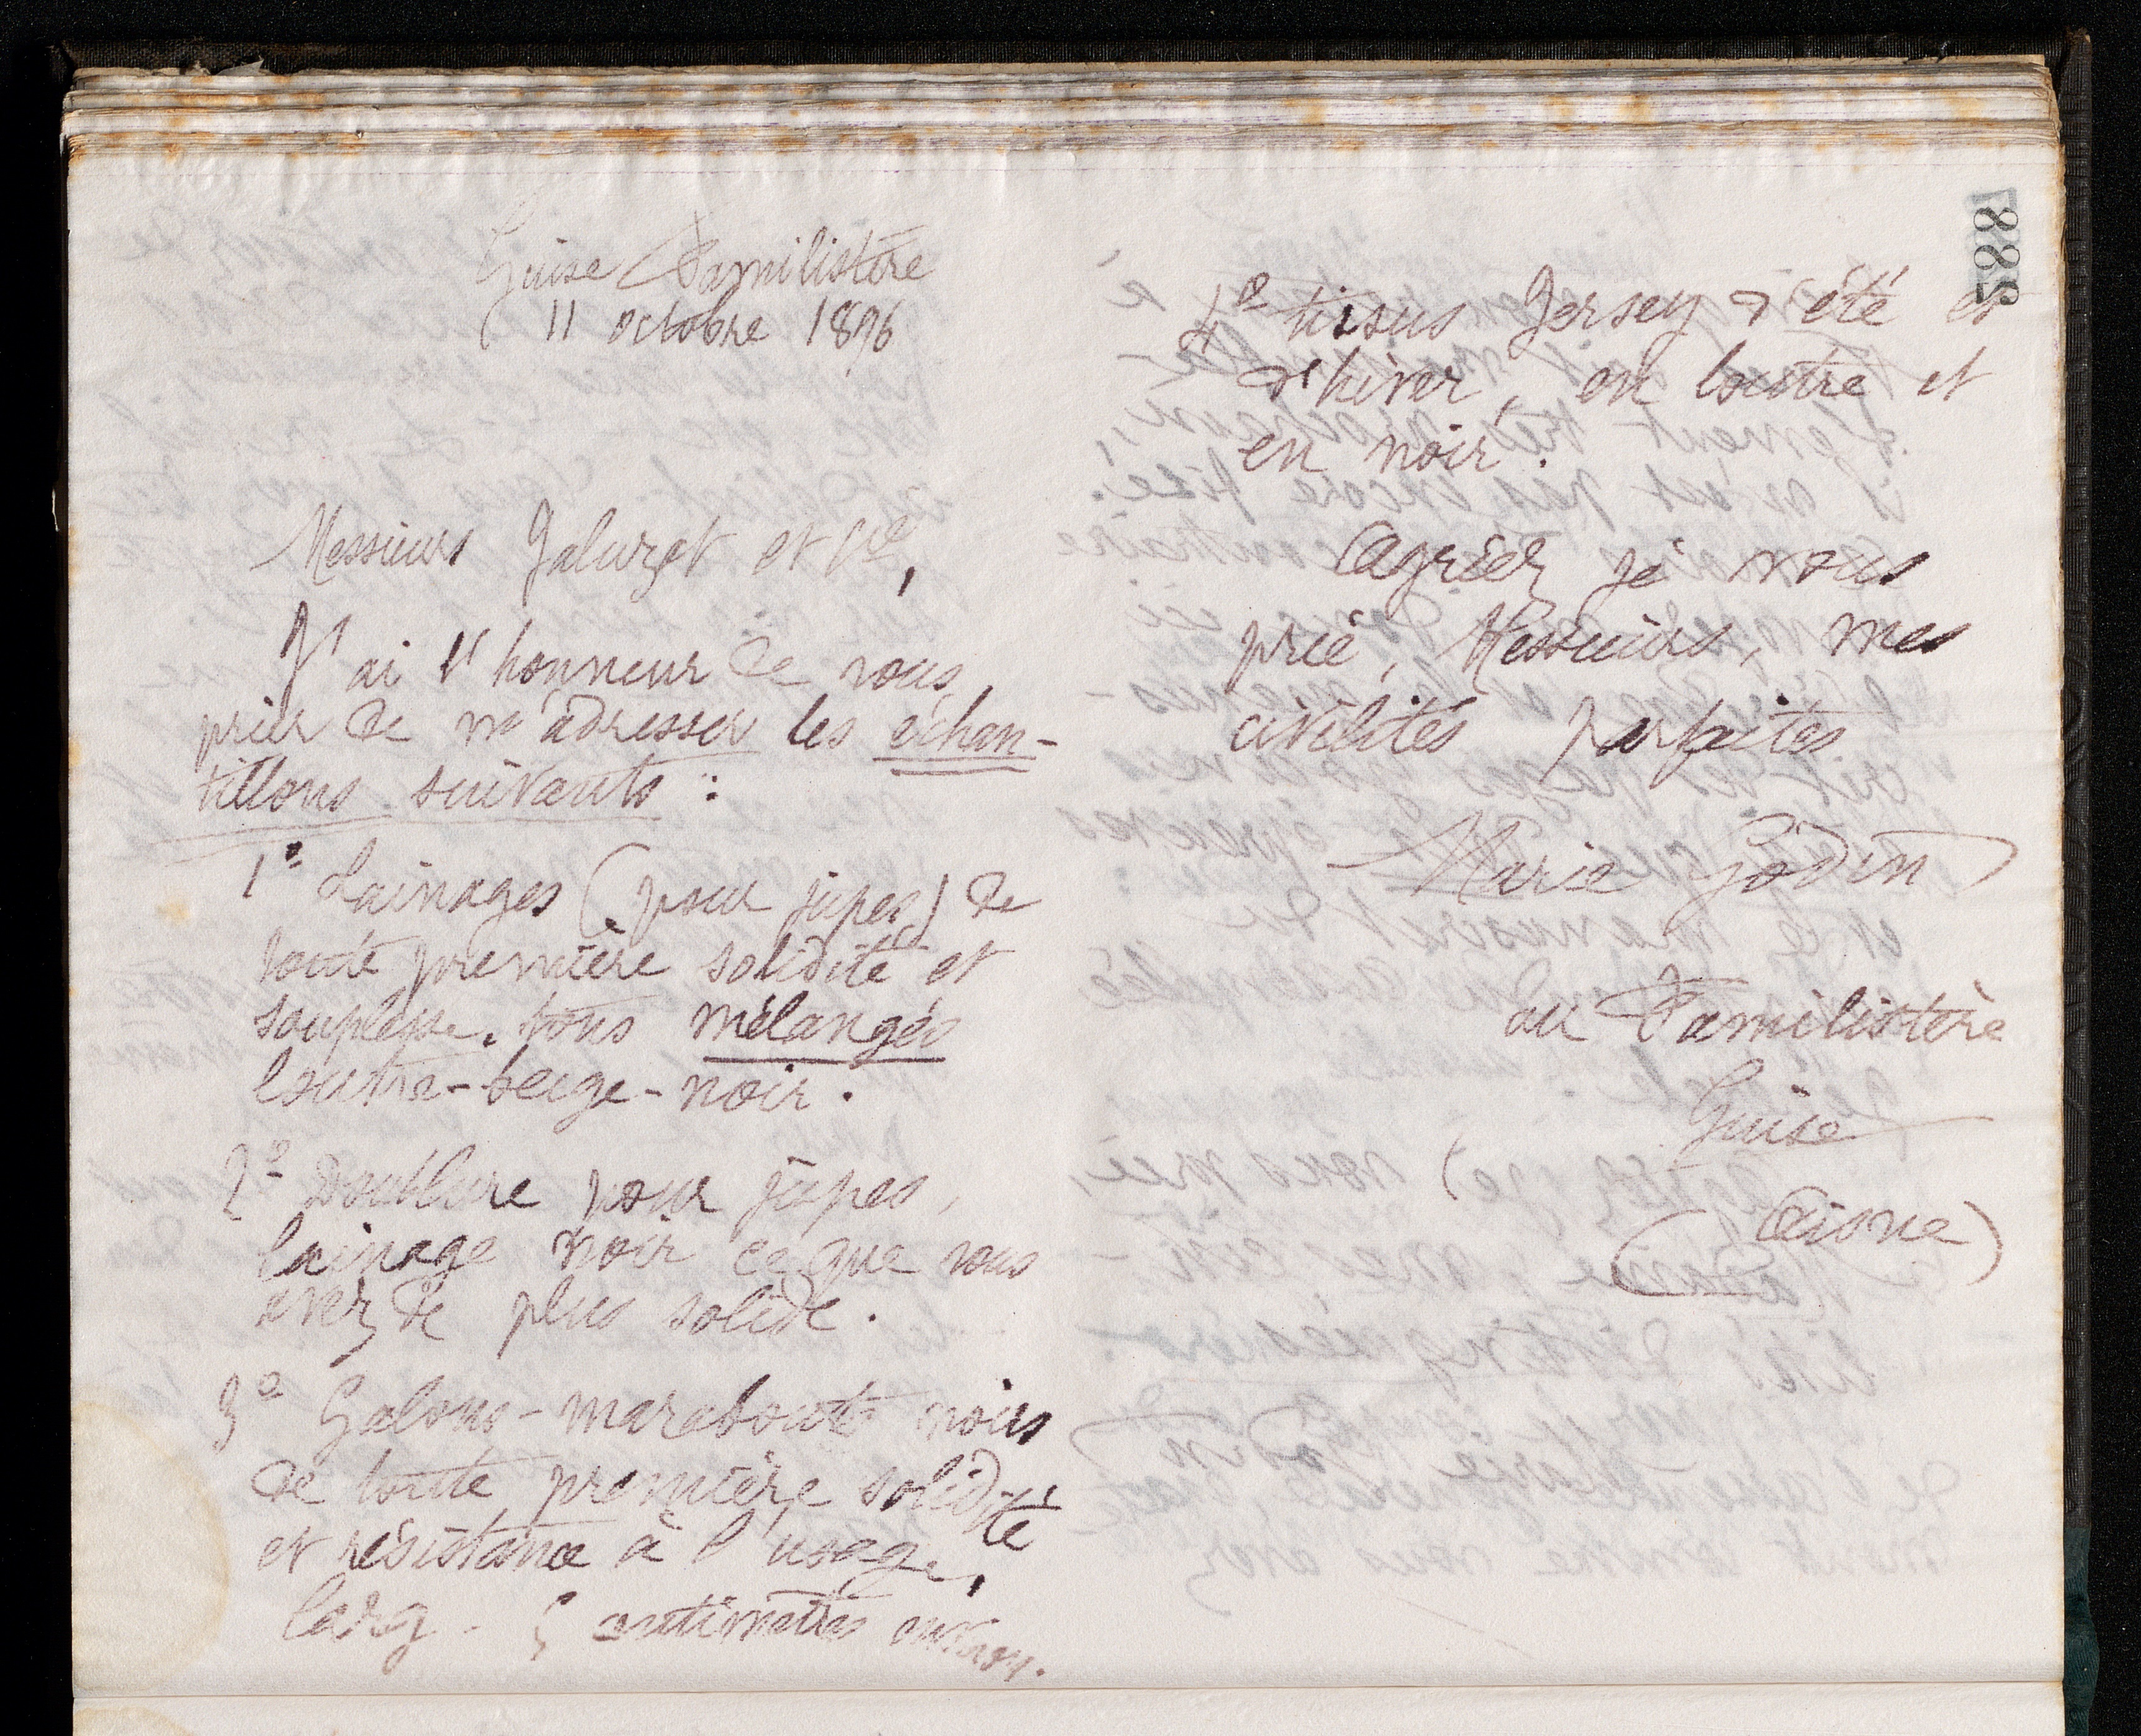 Guise Familistère
11 octobre 1896
Messieurs et Cie,
J'ai l'honneur de vous
prier de m'adresser les échan-
tillons suivants :
1º Lainages (pour jupes) de
toute première solidité et
souplesse, tons mélangés
loutre-beige-noir.
2º Doublure pour jupes,
lainage noir ce que vous
avez de plus solide.
3º Galons-marabouts noirs
de toute première solidité
et résistance à l'usage,
larg - 5 centimètres environ.
888
4º tissus Jersey d'été et
d'hiver, en loutre et
en noir.
Agréez je vous
prie, Messieurs, mes
civilités parfaites
Marie Godin
au Familistère
Guise
(Aisne)